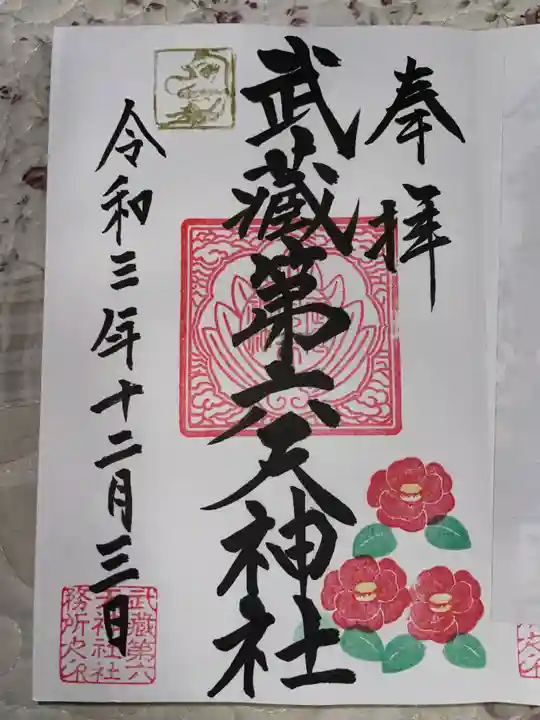 奉拝
武蔵第六天神社
令和三年十二月三日
武蔵第六
天神社社
務所之印